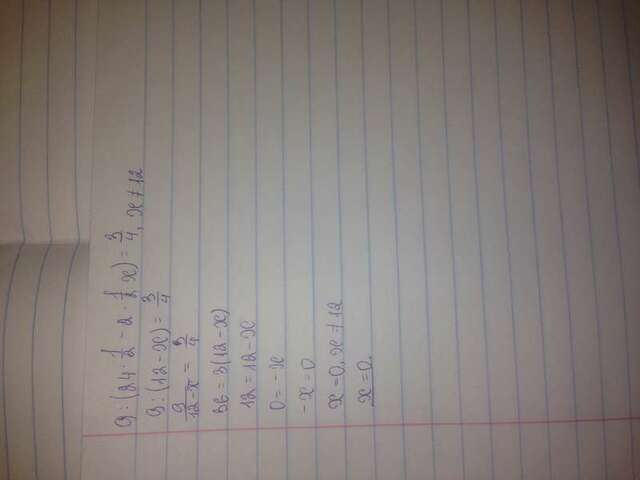 9 : (24 · 1/2 - 2 · 1/2 x) = 3/4, x ≠ 12
9 : (12 - x) = 3/4
9/(12 - x) = 3/4
36 = 3(12 - x)
12 = 12 - x
0 = -x
-x = 0
x = 0, x ≠ 12
x = 0.